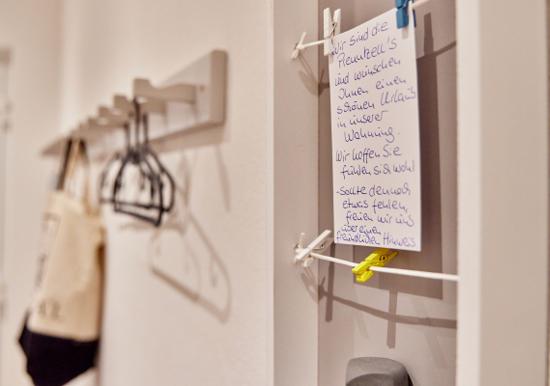 Wir sind die
Plentzell's
und wünschen
Ihnen einen
schönen Urlaub
in unserer
Wohnung.
Wir hoffen Sie
fühlen sich wohl
- sollte dennoch
etwas fehlen,
freuen wir uns
über einen
freundlichen Hinweis